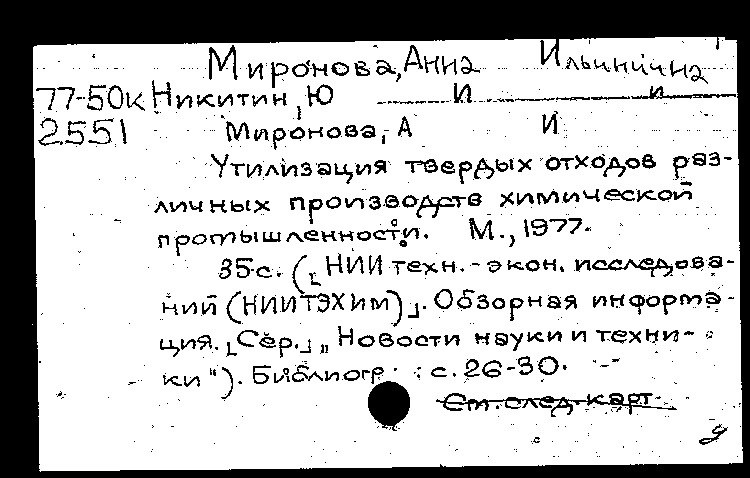 Миронова, Анна Ильинична
77-50к Никитин, Ю И и
2551 Миронова, А И
Утилизация твердых отходов раз-
личных производств химической
промышленности. М., 1977.
35 с. ([НИИ техн.-экон. исследова-
ний (НИИТЭХим)]. Обзорная информа-
ция. [Сер.] „Новости науки и техни-
ки"). Библиогр.: с. 26-30.
См. след. карт.